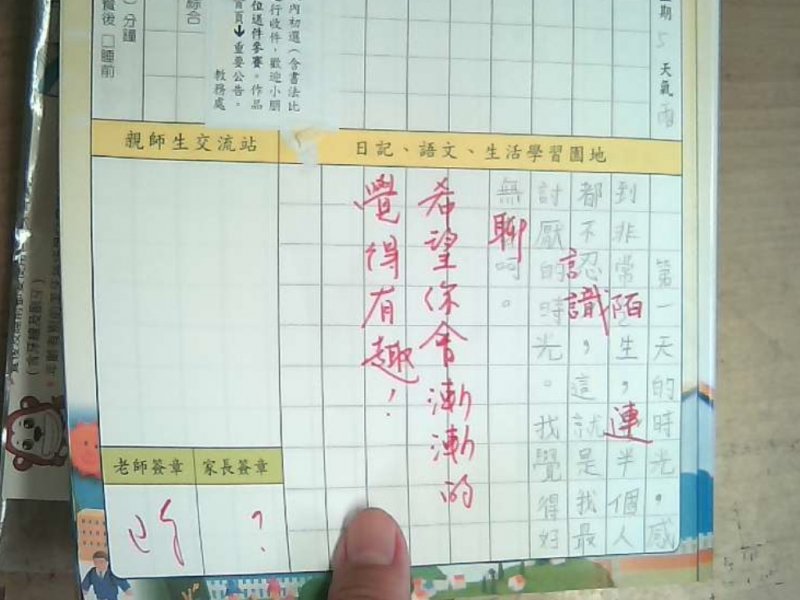 期 5 天氣 雨
內初選（含書法比
行收件，歡迎小朋
位送件參賽。作品
首頁↓重要公告。
教務處
綜合
）分鐘
餐後 □睡前
日記、語文、生活學習園地
第一天的時光，感
到非常陌生，連半個人
都不認識，這就是我最
討厭的時光。我覺得好
無聊呵。
希望你會漸漸的
覺得有趣！
親師生交流站
老師簽章
家長簽章
?